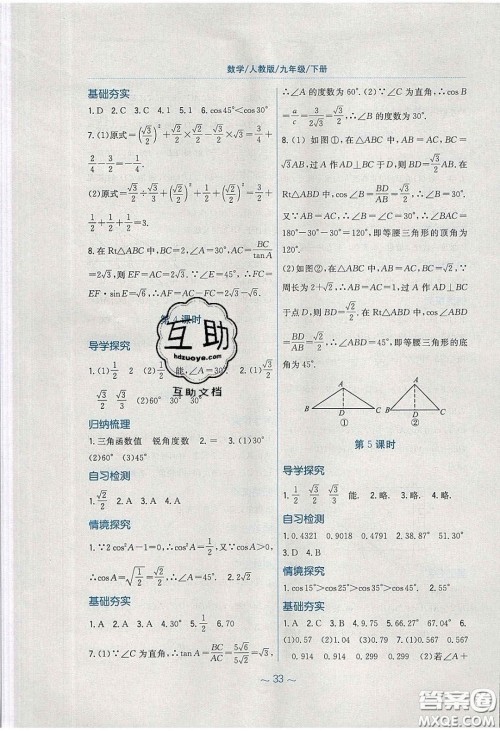 数学/人教版/九年级/下册
基础夯实
1. D 2. C 3. C 4. 1 5. 1 6. cos45°<cos30°
7. (1)原式=(√3/2)²+√2/2×√2/2-√3/2×√3=3/4+
2/4-3/2=-1/4.
(2)原式=√3/2÷√3/2+(√2/2)²+√2/2×√2/2+1=
1+1/2+1/2+1=3.
8. 在Rt△ABC中,BC=2,∠A=30°,AC=BC/tanA
=2√3,则EF=AC=2√3.∵∠E=45°,∴FC=
EF·sinE=√6,∴AF=AC-FC=2√3-√6.
第4课时
导学探究
1. (1)1/2 2 (2)60° 30° 能,∠A=30° 2. (1)1/2
√3/2 √3/3 (2)60° 30° 30°
归纳梳理
1. 三角函数值 锐角度数 2. (1)30°
(2)60° (3)45°
自习检测
1. √2/2 2. A 3. A 4. A
情境探究
1. ∵2cos²A-1=0,∴cos²A=1/2,又∵cosA>0,
∴cosA=√(1/2)=√2/2,∴∠A=45°. 2. 2√3
基础夯实
1. A 2. A 3. A 4. C 5. 1/2 6. 70°
7. (1)∵∠C为直角,∴tanA=BC/AC=5√6/5√2=√3,
∴∠A的度数为60°. (2)∵∠C为直角,∴cosB
=a/c=√3/2,∴∠B的度数为30°.
8. (1)如图①,在△ABC中,AB=AC,BC=
√3AB,过A作AD⊥BC于D,则BD=√3/2AB,在
Rt△ABD中,cosB=BD/AB=√3/2,∴∠B=30°.
又∵AB=AC,∴∠B=∠C=30°,∴∠BAC=
180°-30°-30°=120°,即等腰三角形的顶角为
120°.
(2)如图②,在△ABC中,AB=AC,设△ABC
周长为2+√2,BC=√2,AB=1,过A作AD⊥BC
于点D,则BD=√2/2,在Rt△ABD中,cosB=
BD/AB=√2/2,∴∠B=45°,即等腰三角形的底
角为45°.
A A
B D C B D C
① ②
第5课时
导学探究
1. 1/2 √3/2 √3/3 能. 2. 略. 3. 略. 4. 略.
自习检测
1. 0.4321 0.9018 0.4791 2. 38.87° 51.3°
3. D 4. B
情境探究
1. cos15°>cos25°>cos35° 2. 55°
基础夯实
1. A 2. D 3. B 4. A 5. 66.27° 67.04° 6. >
7. (1)0.57 (2)1.04 (3)0.19 (4)0.53
8. (1)0.94 0.94 0.81 0.81 (2)若∠A+
~ 33 ~
互助
hdzuoye.com
互助文档
答案圈
MXQE.COM